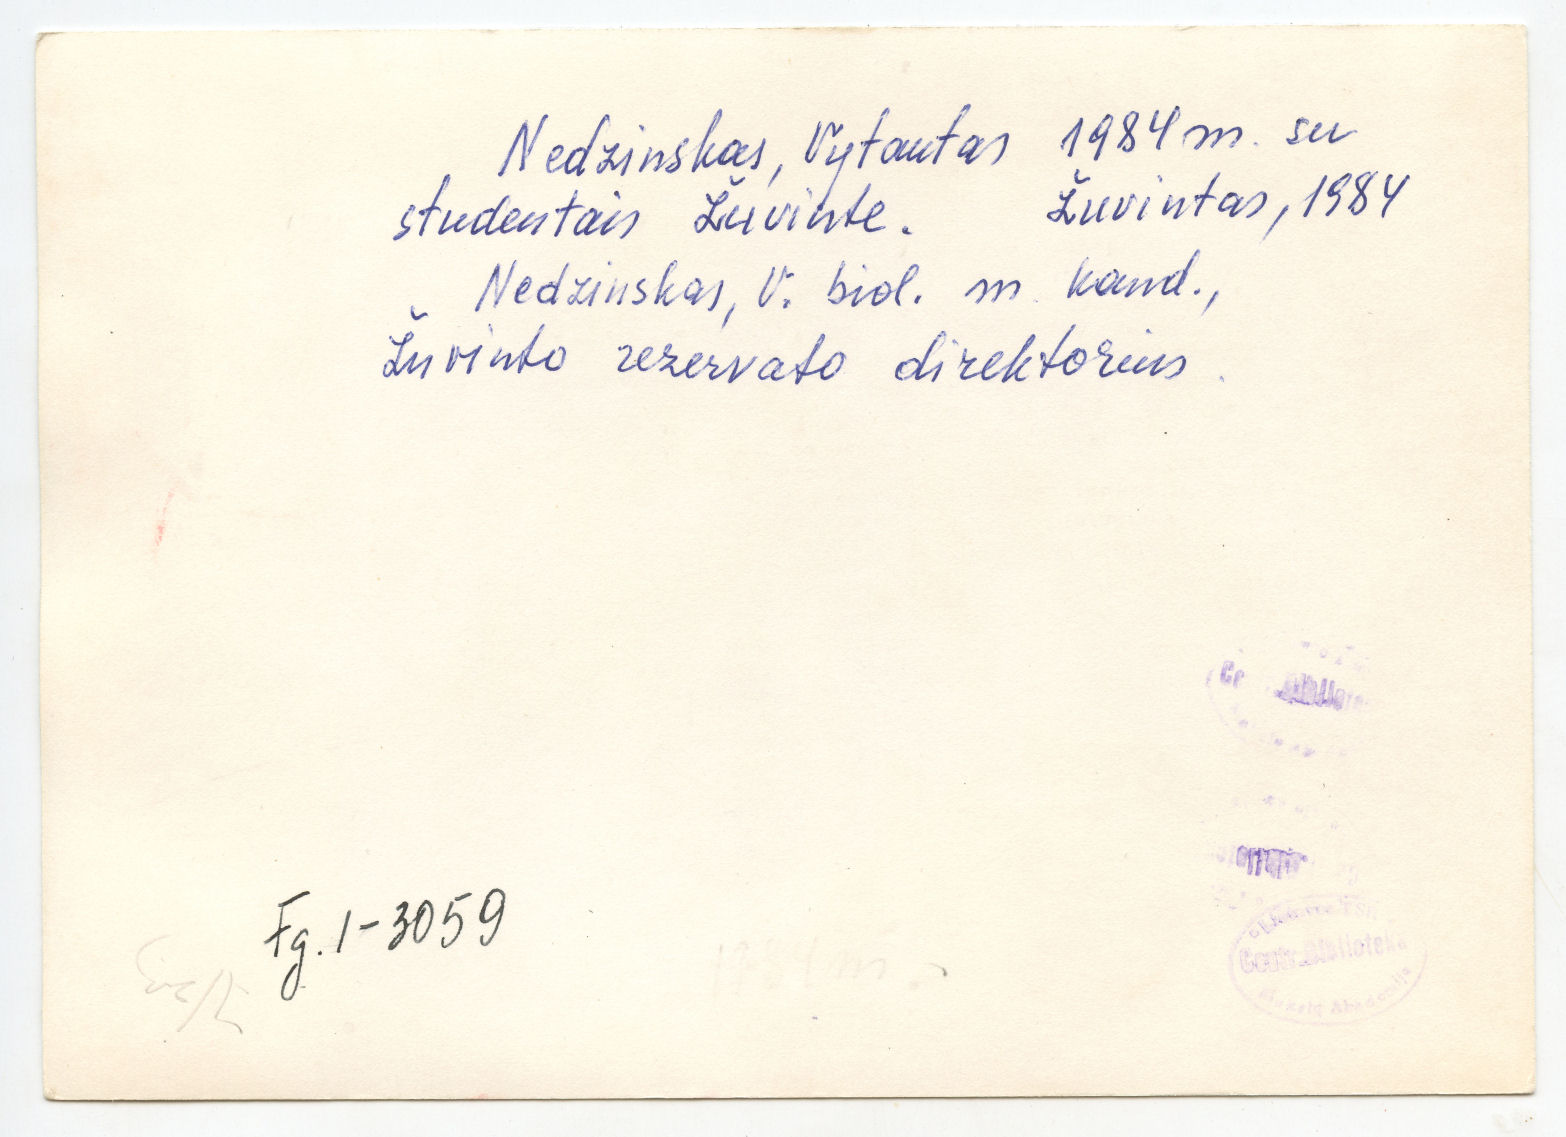 Nedzinskas, Vytautas 1984 m. su
studentais Žuvinte. Žuvintas, 1984
Nedzinskas, V. biol. m. kand.,
Žuvinto rezervato direktorius.
Fg. 1-3059
1984 m.
Centr. Biblioteka
Mokslų Akademija